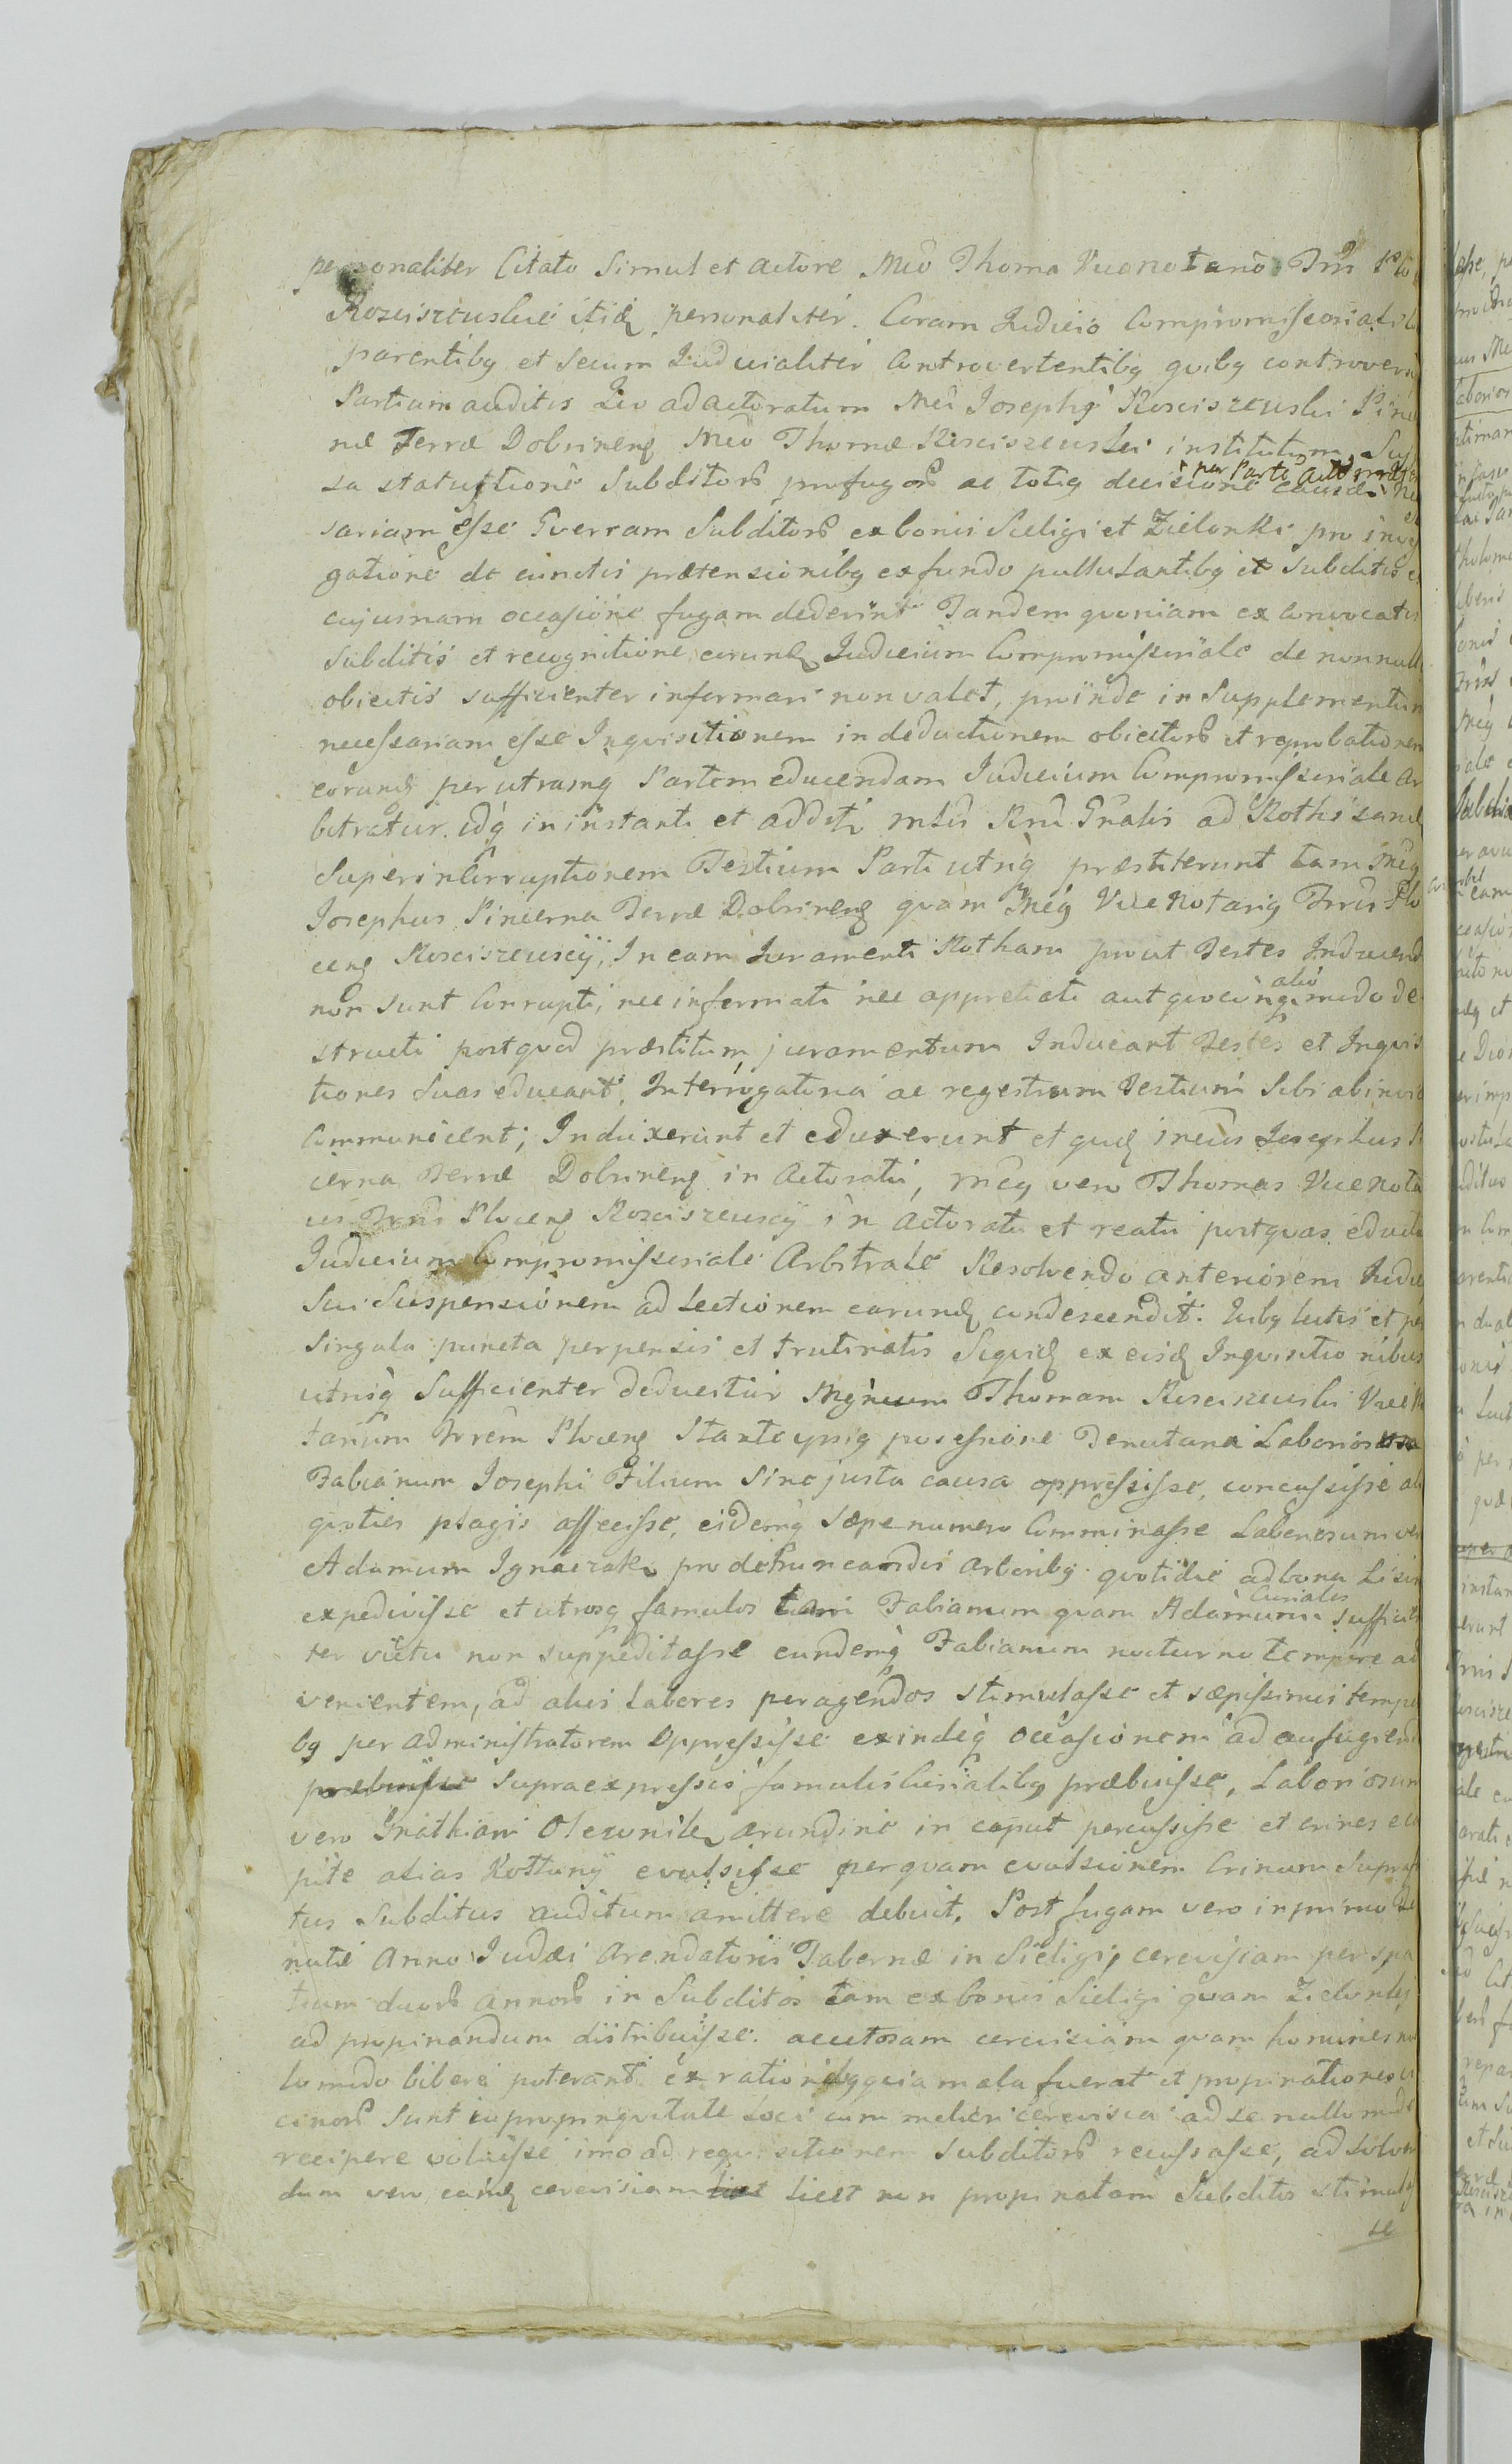 personaliter Citato Simul et actore Mco Thoma Vicenotario Trrii Plo
Rosciszewskie itid personaliter. Coram Judicio Compromissoriali
parentibg et secum Judicialiter Controvertentibg quibg controversi
Partium auditis Quo ad actoratum Mci Josephi Rosciszewski Pincer
næ Terræ Dobrinens Mco Thomæ Rosciszewski institutum,
sa statuitione Subditorum profugorum ac totig decisione causæ per Parte
sariam esse Gverram Subditorum ex bonis Sieligi et Zielonki pro inve
gatione de cunctis prætensionibg ex fundo pullulantibg et subditis
cujusnam occasione fugam dederint Tandem quoniam ex convocatis
Subditis et recognitione eorund Judicium Compromissoriale de nonnull
obiectis sufficienter informari non valet, proinde in Supplementum
necessariam esse Inquisitionem in deductionem obiectorum et reprobationem
eorund per utramq Partem educendam Judicium Compromissoriale Ar
bitratur. idq in instanti et additi Mtis Rni Gnalis ad Rothisand
Super incorruptionem Testium Parti utriq præstiterunt tam Mcg
Josephus Pincerna Terræ Dobrinens quam Mcg Vice Notarig Trrii Plo
cens Rosciszewscÿ, In eam Juramenti Rotham prout Testes Inducend
non sunt Corrupti, nec informati nec appretiati aut quocunq alio modo de
structi postquod præstitum juramentum Inducant Testes et Inquisi
tiones suas educant, Interrogatoria ac regestrum Testium Sibi abinvic
Communicent; Induxerunt et eduxerunt et quid Mcus Josephus P
cerna Terræ Dobrinens in Actoratu, Mcg vero Thomas Vicenota
us Trrii Plocens Rosciszewscÿ in Actoratu et reatu postquas educta
Judicium Compromissoriale Arbitrale Resolvendo anteriorem Judic
Sui Suspensionem ad Lectionem earund condescendit. Quibg lectis et per
singula puncta perpensis et trutinatis Siquid ex eisd Inquisitionibus
utrisq Sufficienter deducitur Mgnicum Thomam Rosciszewski Vice
tarium Trrem Plocens Stante ipsig possessione Denutana Laboriosum
Fabianum Josephi Filium Sine justa causa oppressisse, concussisse ali
quoties plagis affecisse, eidemq sæpenumero Comminasse Laboriosum ver
Adamum Ignaczak pro detruncandis arboribg quotidie ad bona Lisi
expedivisse et utrosq famulos Curiales tam Fabianum quam Adamum suffici
ter victu non suppeditasse eundemq Fabianum nocturno tempore ad
venientem, ad alios Labores peragendos stimulasse et sæpissimis tempo
bg per administratorem Oppressisse exindeq occasionem ad aufugiend
præbuisse supra expressis famulis Curialibg præbuisse, Laboriosum
vero Gnatham Olewnik arundine in caput percussisse et crines e ca
pite alias Kottunÿ evulsisse per quam evulsionem Crinum Supras
tus Subditus auditum amittere debuit. Post fugam vero in primo
nuti Anno Judæi Arendatoris Tabernæ in Sieligi, cerevisiam per spa
tium duorum annorum in Subditos tam ex bonis Sieligi quam Zielonki
ad propinandum distribuisse. acutosam cerevisiam quam homines nu
lo modo bibere poterant ex rationibg quia mala fuerat et propinationes vi
cinorum sunt in propinquitate Loci cum meliori cerevisia ad se nullo modo
recipere voluisse imo ad requisitionem Subditorum recussasse, ad solven
dum vero eand cerevisiam licet licet non propinatam Subditis stimulas
se